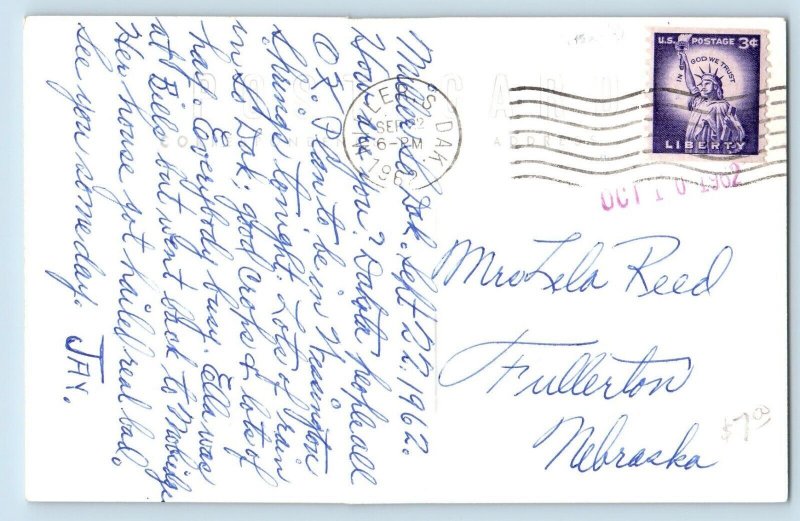 Miller, So Dak. Sept 22. 1962.
How are you? Dakota people all
OK. Plan to be in Wessington
Springs tonight. Lots of rain
in So Dak; good crops & lots of
hay. Everybody busy. Ella was
at Bills but went back to Mobridge
Her house got hailed real bad.
See you someday. JAY.
POST CARD
S DAK
SEP 22
6-PM
196
U.S. POSTAGE 3¢
IN GOD WE TRUST
LIBERTY
OCT 10 1962
Mrs Lela Reed
Fullerton
Nebraska
$7.00